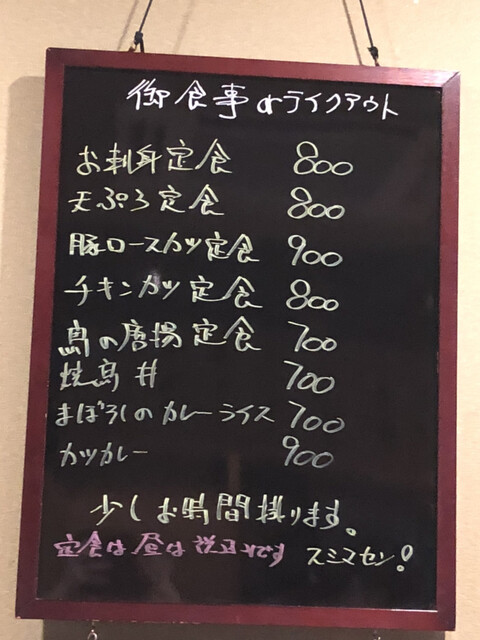 御食事orテイクアウト
お刺身定食 800
天ぷら定食 800
豚ロースカツ定食 900
チキンカツ定食 800
鳥の唐揚定食 700
焼鳥丼 700
まぼろしのカレーライス 700
カツカレー 900
少しお時間掛ります。
定食は昼は税込です スミマセン!